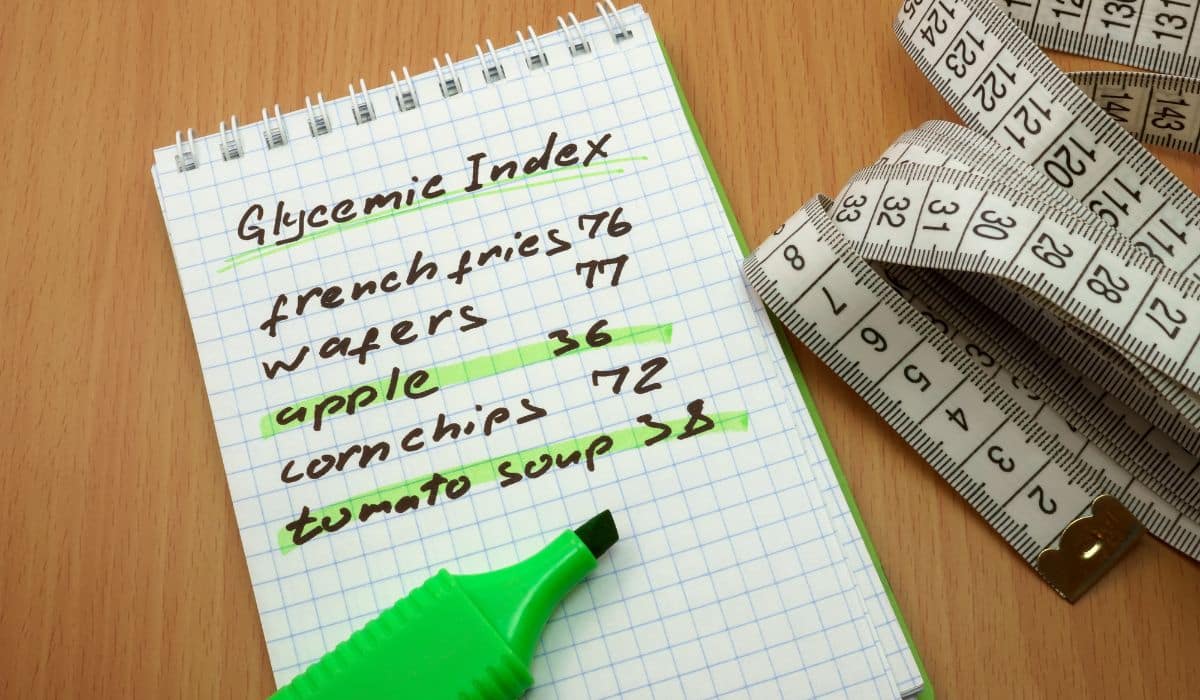 Glycemic Index
french fries 76
wafers 77
apple 36
corn chips 72
tomato soup 38
124 123 122 121 120 119
131
143
33 32 31 30 29 28 27
8 7 6 5 4 3 2